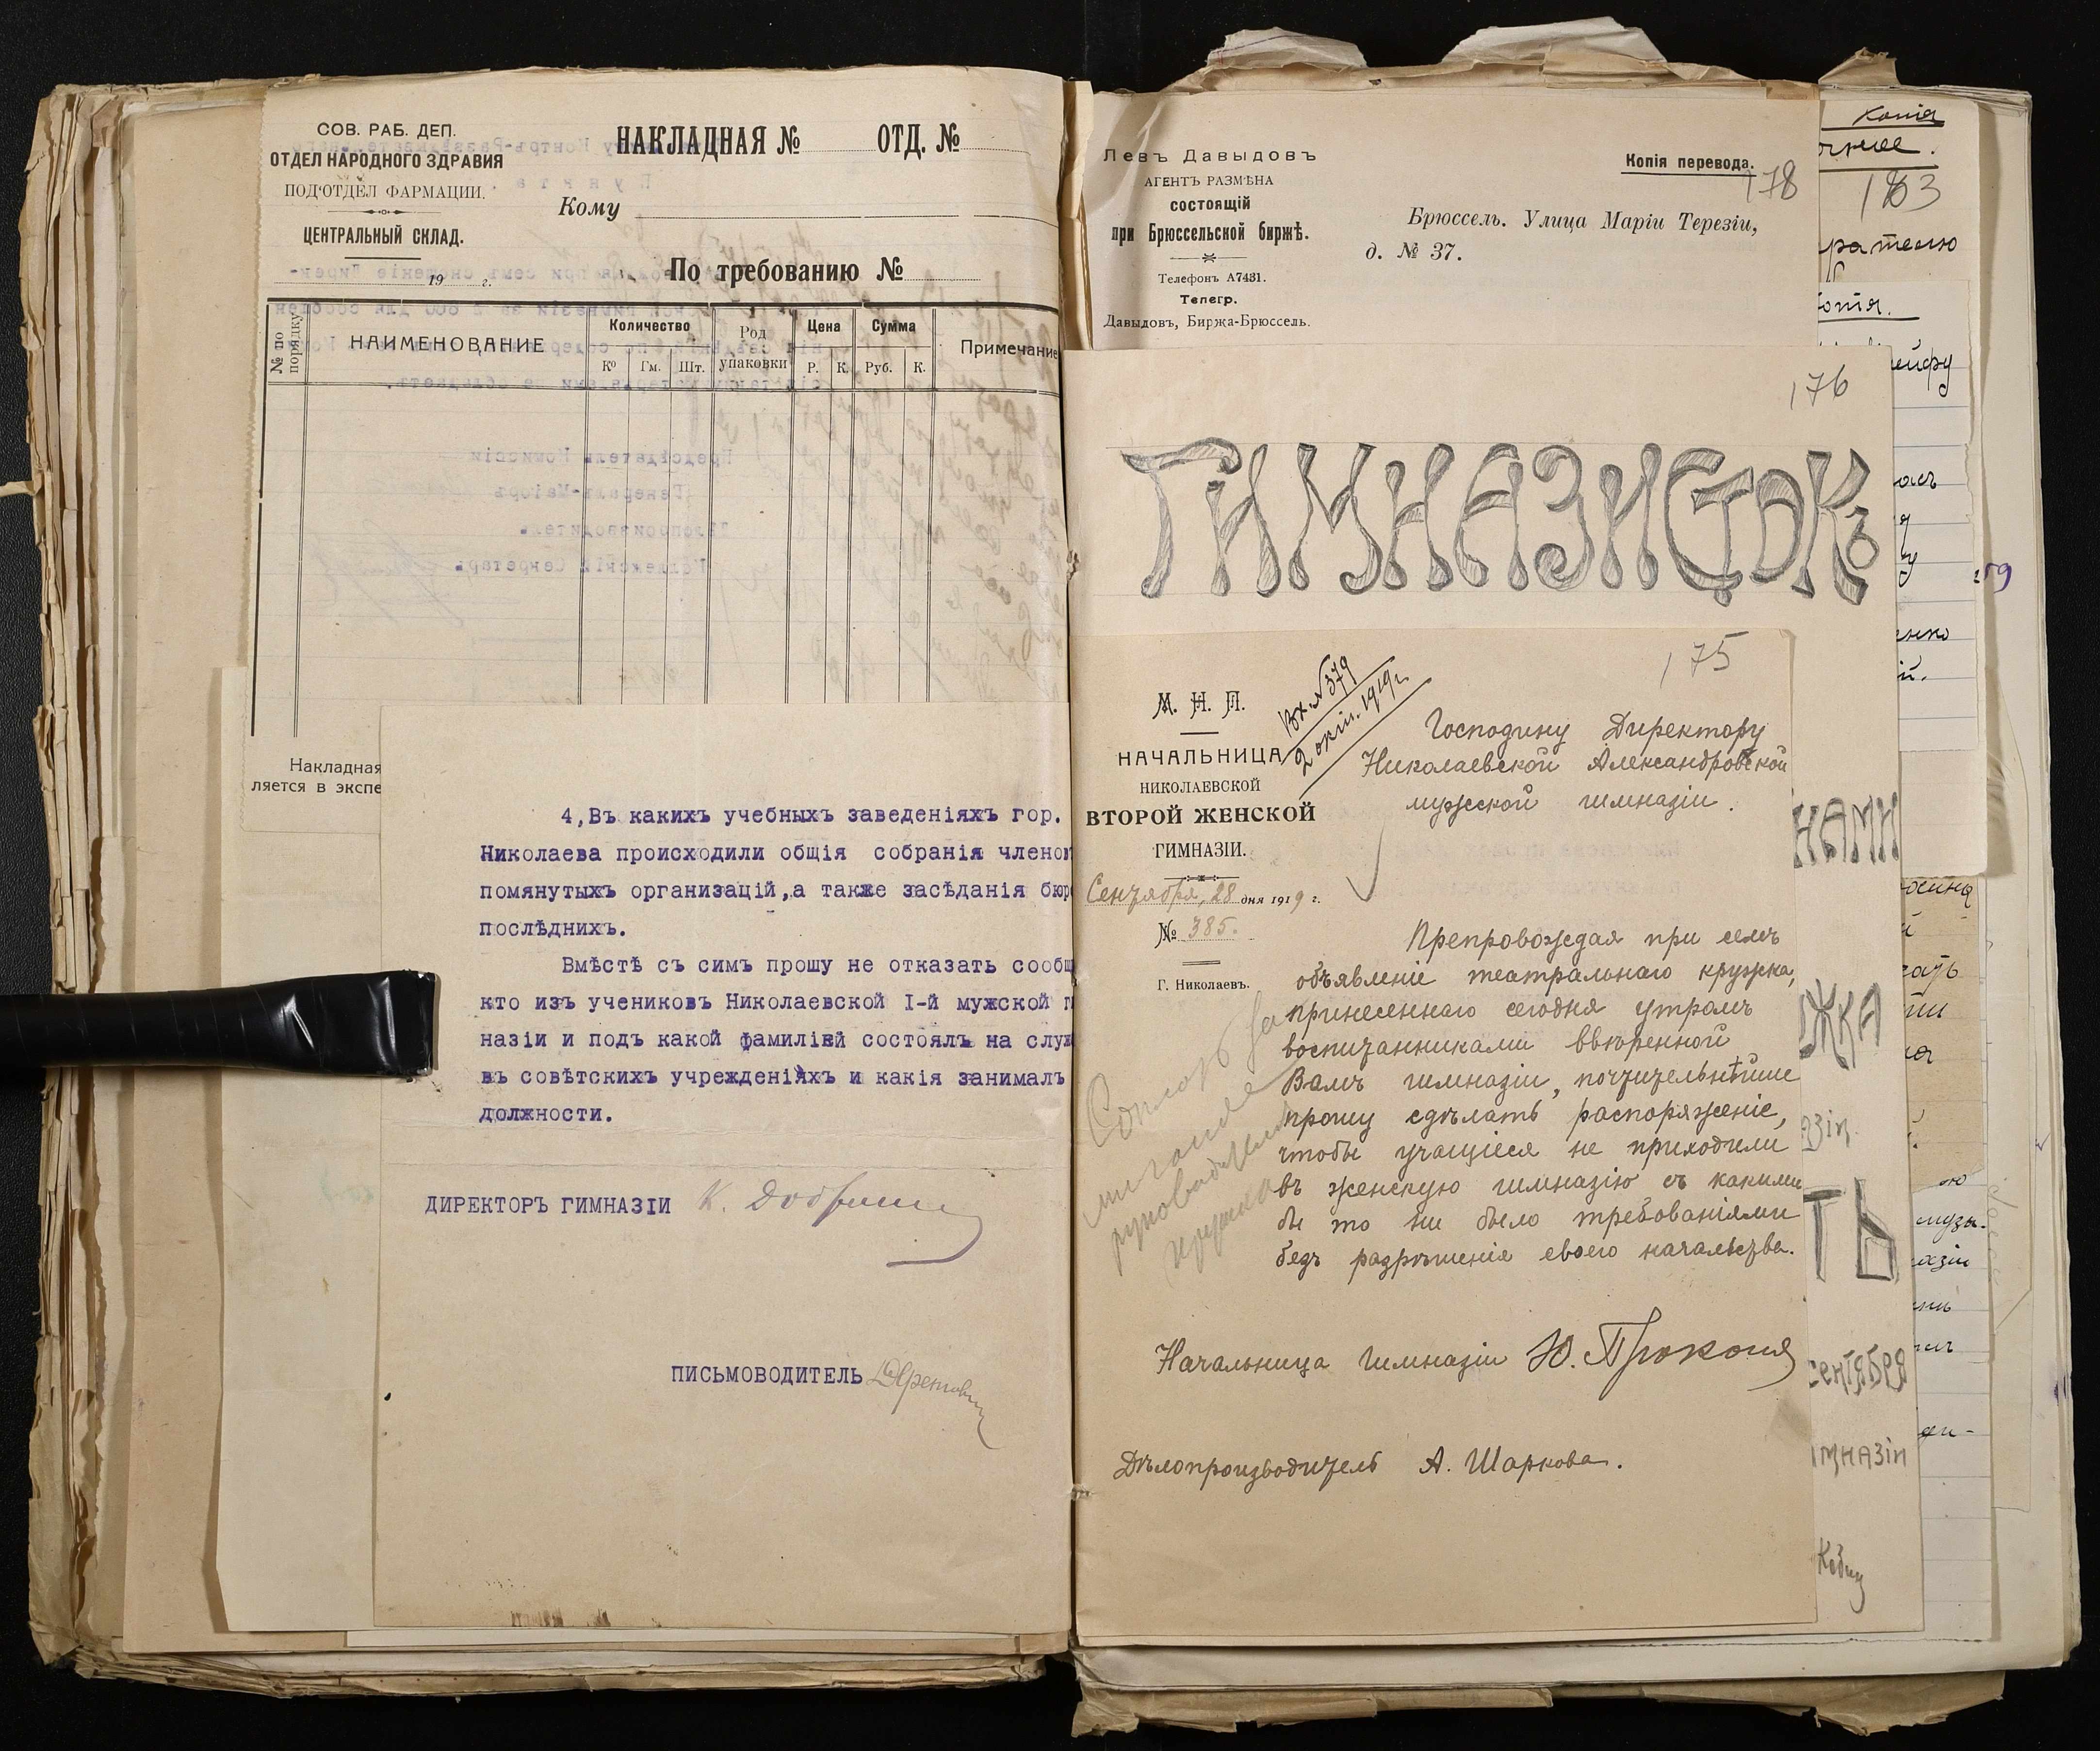 СОВ. РАБ. ДЕП.
ОТДЕЛ НАРОДНОГО ЗДРАВИЯ
ПОД'ОТДЕЛ ФАРМАЦИИ.
ЦЕНТРАЛЬНЫЙ СКЛАД.
19 г.
НАКЛАДНАЯ № ОТД. №
Кому
По требованию №
№ по порядку
НАИМЕНОВАНИЕ
Количество
Ко Гм. Шт.
Род упаковки
Цена
Р. К.
Сумма
Руб. К.
Примечание
Накладная
ляется в экспе
4,Въ какихъ учебныхъ заведеніяхъ гор.
Николаева происходили общія собранія члено
помянутыхъ организацій,а также засѣданія бюр
послѣднихъ.
Вмѣстѣ съ симъ прошу не отказать сообщ
кто изъ учениковъ Николаевской I-й мужской г
назіи и подъ какой фамиліей состоялъ на служ
въ совѣтскихъ учрежденіяхъ и какія занималъ
должности.
ДИРЕКТОРЪ ГИМНАЗІИ К.
ПИСЬМОВОДИТЕЛЬ
Левъ Давыдовъ
АГЕНТЪ РАЗМѢНА
состоящій
при Брюссельской биржѣ.
Телефонъ А7431.
Телегр.
Давыдовъ, Биржа-Брюссель.
Копія перевода.
178
Брюссель. Улица Маріи Терезіи,
д. № 37.
176
ГИМНАЗИСТОКЪ
175
М. Н. П.
НАЧАЛЬНИЦА
НИКОЛАЕВСКОЙ
ВТОРОЙ ЖЕНСКОЙ
ГИМНАЗІИ.
Сентября, 28 дня 1919 г.
№ 385.
Г. Николаевъ.
Вх. №379
2 окт. 1919 г.
Господину Директору
Николаевской Александровской
мужской гимназіи.
Препровождая при семъ
объявленіе театральнаго кружка,
принесеннаго сегодня утромъ
воспитанниками ввѣренной
Вамъ гимназіи, почтительнѣйше
прошу сдѣлать распоряженіе,
чтобы учащіеся не приходили
въ женскую гимназію съ какими
бы то ни было требованіями
безъ разрѣшенія своего начальства.
Начальница гимназіи Ю. Прокопя
Дѣлопроизводитель А. Шаркова.
копія
183
рателю
копія.
НАМИ
ЖКА
зіи
ТЬ
сентября
имназіи